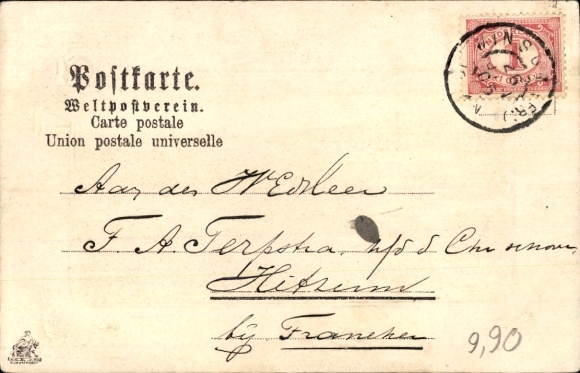 Postkarte.
Weltpostverein.
Carte postale
Union postale universelle
Aan den WEdHeer
F. A. Terpstra. hfd d Chr
Hitzum
bij Franeker
9,90